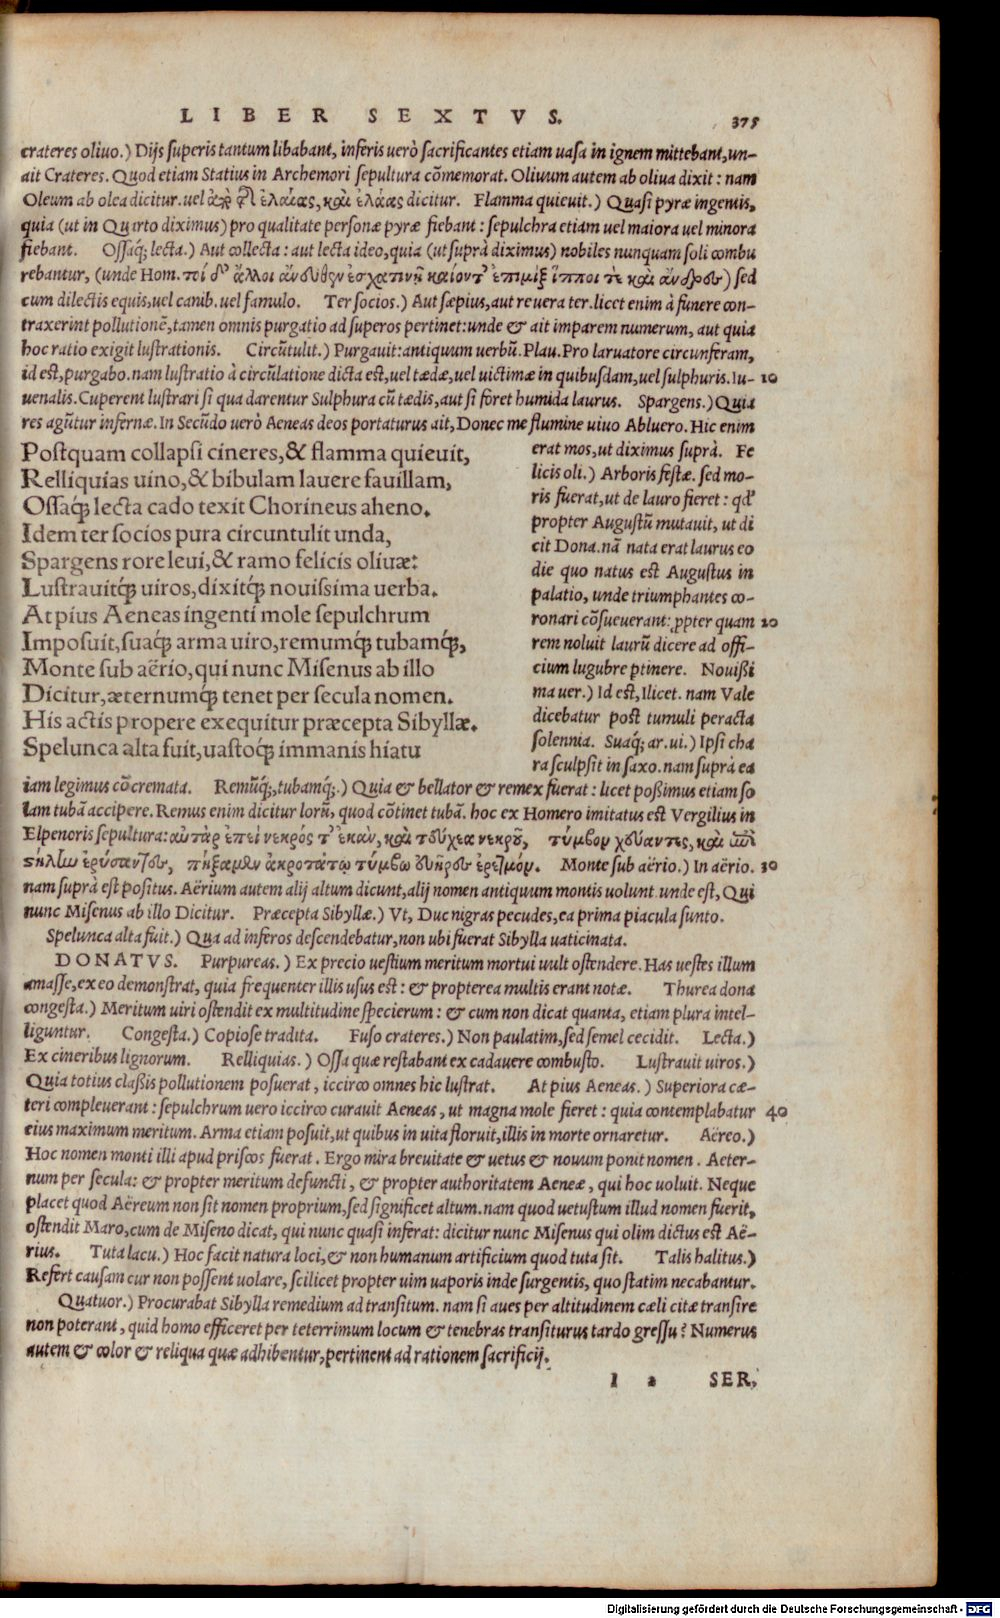 LIBER SEXTVS. 375
crateres oliuo.) Dijs superis tantum libabant, inferis uerò sacrificantes etiam uasa in ignem mittebant, un-
ait Crateres. Quod etiam Statius in Archemori sepultura cōmemorat. Oliuum autem ab oliua dixit: nam
Oleum ab olea dicitur. uel ἐλαίας, καὶ ἐλάας dicitur. Flamma quieuit.) Quasi pyræ ingentis,
quia (ut in Quarto diximus) pro qualitate personæ pyræ fiebant: sepulchra etiam uel maiora uel minora
fiebant. Ossaq; lecta.) Aut collecta: aut lecta ideo, quia (ut suprà diximus) nobiles nunquam soli combu
rebantur, (unde Hom. ἄλλοι καίοντ' ἐπιμὶξ ἵπποι τὲ καὶ ἄνδρες) sed
cum dilectis equis, uel canib. uel famulo. Ter socios.) Aut sæpius, aut reuera ter. licet enim à funere con-
traxerint pollutionē, tamen omnis purgatio ad superos pertinet: unde & ait imparem numerum, aut quia
hoc ratio exigit lustrationis. Circūtulit.) Purgauit: antiquum uerbū. Plau. Pro laruatore circunferam,
id est, purgabo. nam lustratio à circūlatione dicta est, uel tædæ, uel uictimæ in quibusdam, uel sulphuris. Iu- 10
uenalis. Cuperent lustrari si qua darentur Sulphura cū tædis, aut si foret humida laurus. Spargens.) Quia
res agūtur infernæ. In Secūdo uerò Aeneas deos portaturus ait, Donec me flumine uiuo Abluero. Hic enim
Postquam collapsi cineres, & flamma quieuit,
Relliquias uino, & bibulam lauere fauillam,
Ossaq́; lecta cado texit Chorineus aheno.
Idem ter socios pura circuntulit unda,
Spargens rore leui, & ramo felicis oliuæ:
Lustrauitq́; uiros, dixitq́; nouissima uerba.
At pius Aeneas ingenti mole sepulchrum
Imposuit, suaq́; arma uiro, remumq́; tubamq́;,
Monte sub aërio, qui nunc Misenus ab illo
Dicitur, æternumq́; tenet per secula nomen.
His actis propere exequitur præcepta Sibyllæ.
Spelunca alta fuit, uastoq́; immanis hiatu
erat mos, ut diximus suprà. Fe
licis oli.) Arboris festæ. sed mo-
ris fuerat, ut de lauro fieret: qd'
propter Augustū mutauit, ut di
cit Dona. nā nata erat laurus eo
die quo natus est Augustus in
palatio, unde triumphantes co-
ronari cōsueuerant: ꝓpter quam 20
rem noluit laurū dicere ad offi-
cium lugubre ptinere. Nouißi
ma uer.) Id est, Ilicet. nam Vale
dicebatur post tumuli peracta
solennia. Suaq; ar. ui.) Ipsi cha
ra sculpsit in saxo. nam suprà ea
iam legimus cōcremata. Remūq́;, tubamq́;.) Quia & bellator & remex fuerat: licet poßimus etiam so
lam tubā accipere. Remus enim dicitur lorū, quod cōtinet tubā. hoc ex Homero imitatus est Vergilius in
Elpenoris sepultura: αὐτὰρ ἐπεὶ νεκρός τ' ἐκάη, καὶ τεύχεα νεκροῦ, τύμβον χεύαντες, καὶ ἐπὶ
στήλην ἐρύσαντες, πήξαμεν ἀκροτάτῳ τύμβῳ εὐῆρες ἐρετμόν. Monte sub aërio.) In aërio. 30
nam suprà est positus. Aërium autem alij altum dicunt, alij nomen antiquum montis uolunt. unde est, Qui
nunc Misenus ab illo Dicitur. Præcepta Sibyllæ.) Vt, Duc nigras pecudes, ea prima piacula sunto.
Spelunca alta fuit.) Qua ad inferos descendebatur, non ubi fuerat Sibylla uaticinata.
DONATVS. Purpureas.) Ex precio uestium meritum mortui uult ostendere. Has uestes illum
amasse, ex eo demonstrat, quia frequenter illis usus est: & propterea multis erant notæ. Thurea dona
congesta.) Meritum uiri ostendit ex multitudine specierum: & cum non dicat quanta, etiam plura intel-
liguntur. Congesta.) Copiose tradita. Fuso crateres.) Non paulatim, sed semel cecidit. Lecta.)
Ex cineribus lignorum. Relliquias.) Ossa quæ restabant ex cadauere combusto. Lustrauit uiros.)
Quia totius claßis pollutionem posuerat, iccirco omnes hic lustrat. At pius Aeneas.) Superiora cæ-
teri compleuerant: sepulchrum uero iccirco curauit Aeneas, ut magna mole fieret: quia contemplabatur 40
eius maximum meritum. Arma etiam posuit, ut quibus in uita floruit, illis in morte ornaretur. Aëreo.)
Hoc nomen monti illi apud priscos fuerat. Ergo mira breuitate & uetus & nouum ponit nomen. Aeter-
num per secula: & propter meritum defuncti, & propter authoritatem Aeneæ, qui hoc uoluit. Neque
placet quod Aëreum non sit nomen proprium, sed significet altum. nam quod uetustum illud nomen fuerit,
ostendit Maro, cum de Miseno dicat, qui nunc quasi inferat: dicitur nunc Misenus qui olim dictus est Aë-
rius. Tuta lacu.) Hoc facit natura loci, & non humanum artificium quod tuta sit. Talis halitus.)
Refert causam cur non possent uolare, scilicet propter uim uaporis inde surgentis, quo statim necabantur.
Quatuor.) Procurabat Sibylla remedium ad transitum. nam si aues per altitudinem cæli citæ transire
non poterant, quid homo efficeret per teterrimum locum & tenebras transiturus tardo gressu? Numerus
autem & color & reliqua quæ adhibentur, pertinent ad rationem sacrificij.
I 2 SER.
Digitalisierung gefördert durch die Deutsche Forschungsgemeinschaft - DFG